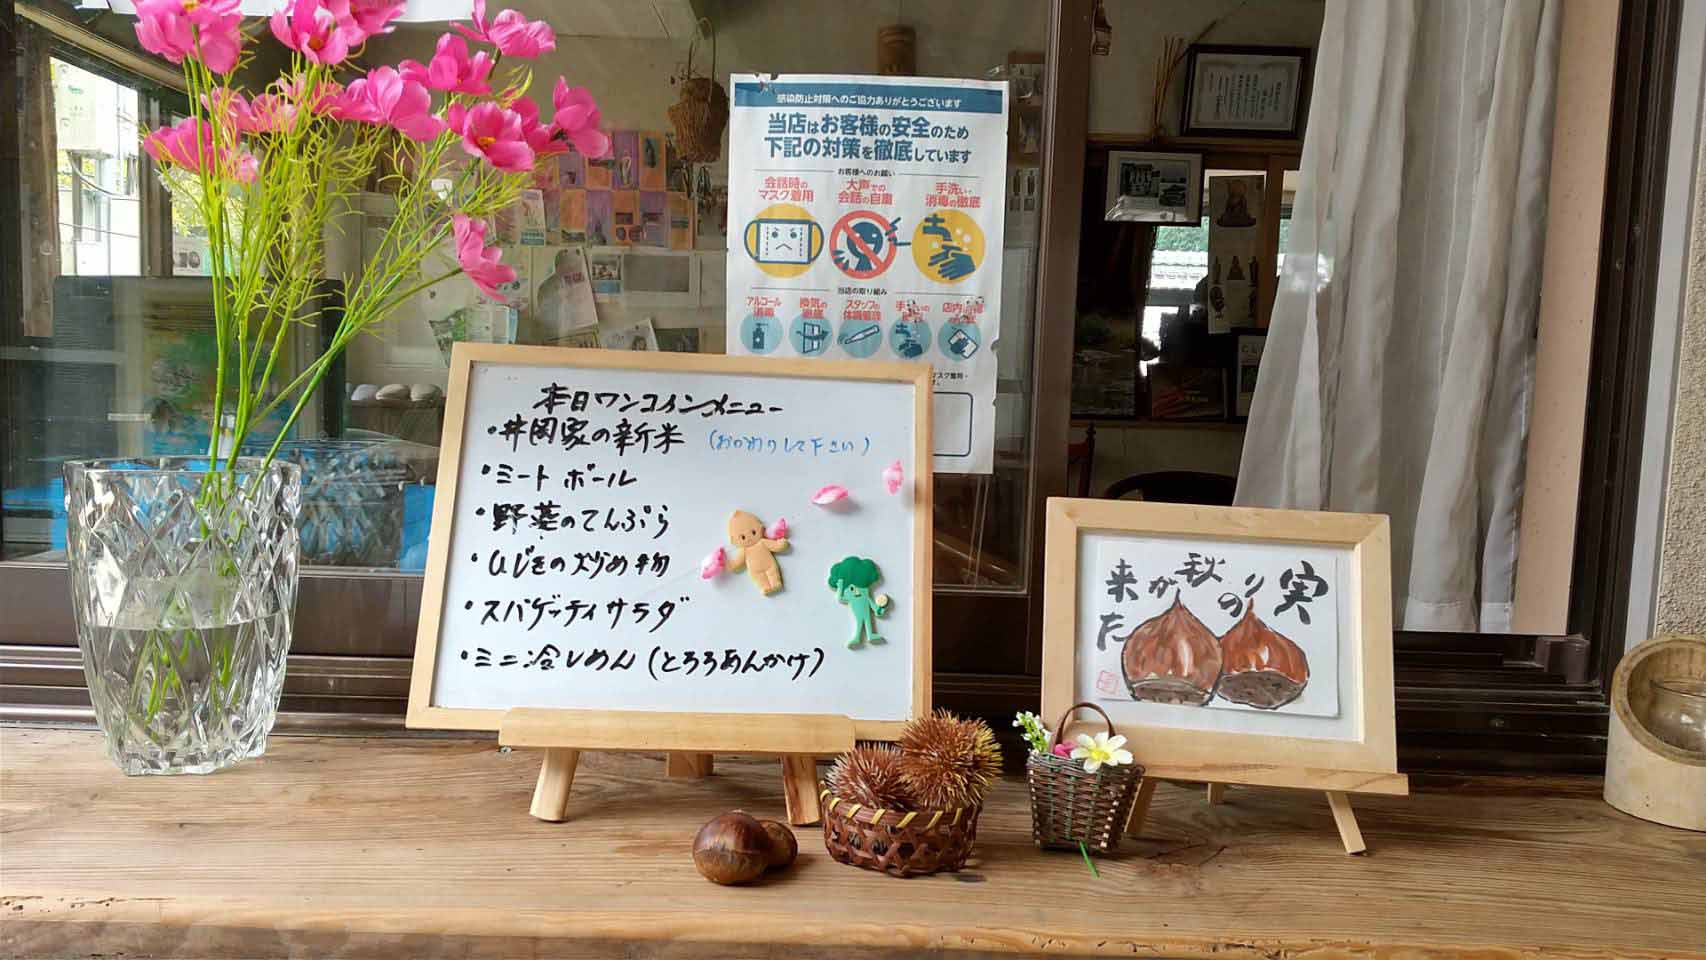 感染防止対策へのご協力ありがとうございます
当店はお客様の安全のため
下記の対策を徹底しています
お客様へのお願い
会話時の
マスク着用
大声での
会話の自粛
手洗い・
消毒の徹底
当店の取り組み
アルコール
消毒
換気の
徹底
スタッフの
体調管理
本日ワンコインメニュー
・井岡家の新米 (おかわりして下さい)
・ミートボール
・野菜のてんぷら
・ひじきの炒め物
・スパゲッティサラダ
・ミニ冷しめん (とろろあんかけ)
実
りの
秋
が
来
た